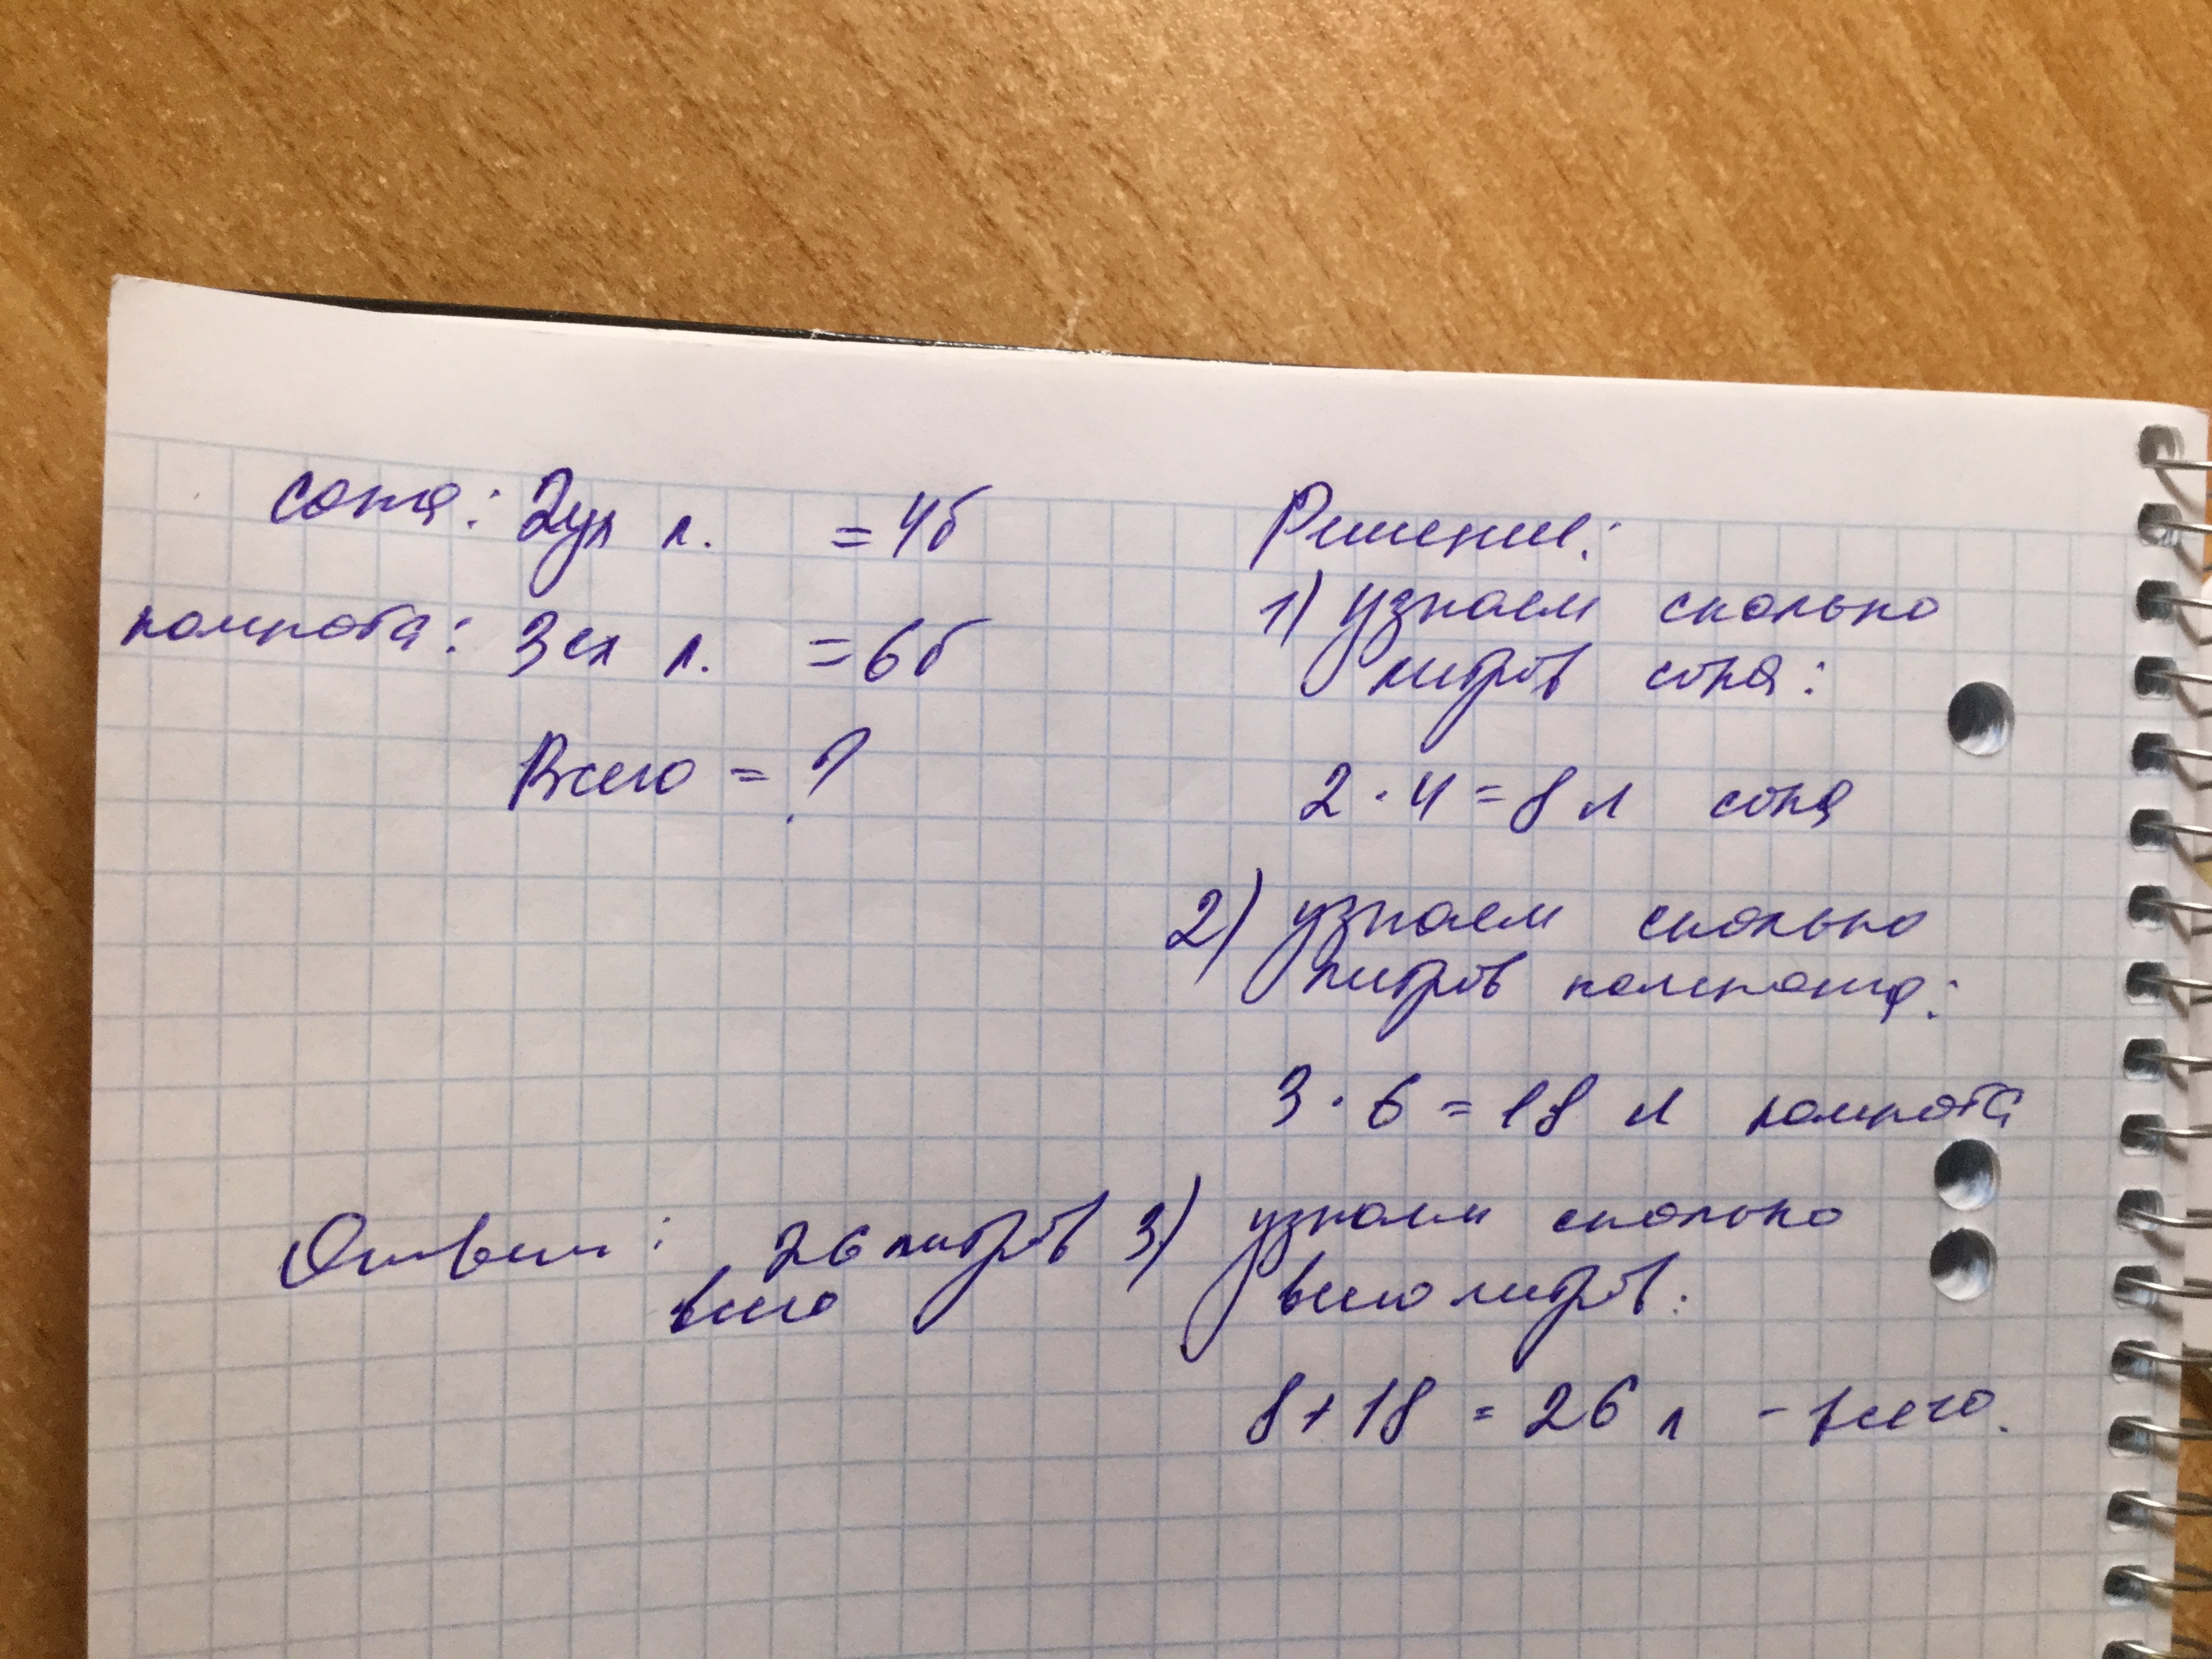 сока: 2ух л. = 4б
компота: 3ех л. = 6б
Всего = ?
Ответ: 26 литров
всего
Решение:
1) узнаем сколько
литров сока:
2 · 4 = 8 л сока
2) узнаем сколько
литров компота:
3 · 6 = 18 л компота
3) узнаем сколько
всего литров:
8 + 18 = 26 л - всего.